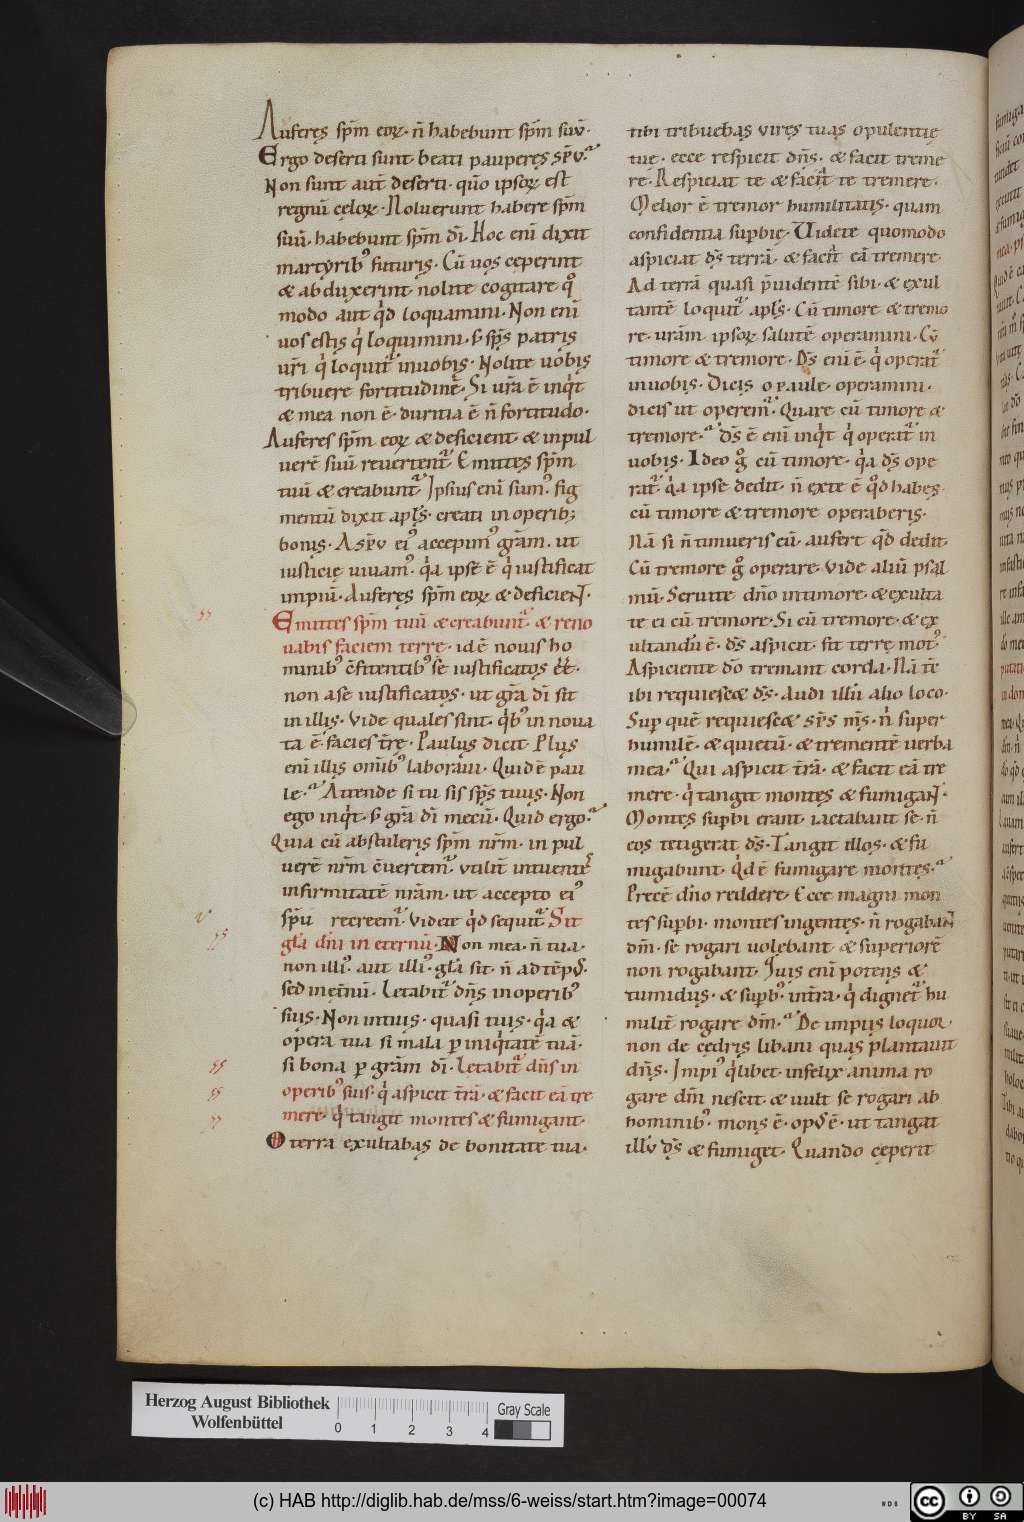 Auferęs sp̄m eoꝝ· n̄ habebunt sp̄m suū·
Ergo deserti sunt· beati pauperęs sp̄u·
Non sunt aut̄ deserti· qūo ipsoꝝ est
regnū cęloꝝ· Noluerunt habere sp̄m
suū· habebunt sp̄m dī· Hoc enī dixit
martyribꝰ futuris· Cū uos ceperint
& abduxerint· nolite cogitare qͦ
modo aut qͥd loquamini· Non enī
uos estis qͥ loquimini· s; sp̄s patris
ur̄i qͥ loquit᷑ in uobis· Nolite uobis
tribuere fortitudinē· Si ur̄a ē inqͥt
& mea non ē· duritia ē n̄ fortitudo·
Auferes sp̄m eoꝝ & deficient· & in pul
uerē suū reuertent᷑ Emittes sp̄m
tuū & creabunt᷑ Ipsius enī sumꝰ fig
mentū dixit apl̄s· creati in operib;
bonis· A sp̄u eiꝰ accepimꝰ grām· ut
iusticię uiuamꝰ· qͥa ipse ē qͥ iustificat
impiū· Auferęs sp̄m eoꝝ & deficient·
Emittes sp̄m tuū & creabunt᷑ & reno
uabis faciem terre· id ē nouis ho
minibꝰ cfitentibꝰ se iustificatos ēē·
non a se iustificatos· ut grā dī sit
in illis· Vide quales sint· qͥbꝰ in noua
ta ē facies tr̄ę· Paulus dicit Plus
enī illis omībꝰ laboraui· Quid ē pau
le· Attende si tu sis sp̄s tuus· Non
ego inqͥt· s; grā dī mecū· Quid ergo·
Quia cū abstuleris sp̄m nr̄m· in pul
uerē nr̄m cuertem᷑ utilit̄ intuentes
infirmitatē nrām· ut accepto eiꝰ
sp̄u recreem᷑ Videte qͥd sequit᷑ Sit
gl̄a dn̄i in eternū· Non mea· n̄ tua·
non illiꝰ aut illiꝰ· gl̄a sit· n̄ ad tēpꝰ·
sed in et̄nū· Letabit᷑ dn̄s in operibꝰ
suis· Non in tuis· quasi tuis· qͥa &
opera tua si mala ꝑ iniqͥtatē tuā·
si bona ꝑ grām dī· Letabit᷑ dn̄s in
operibꝰ suis· qͥ aspicit tr̄ā· & facit eā tre
mere· qͥ tangit montes & fumigant·
O terra exultabas de bonitate tua·
tibi tribuebas uires tuas opulentię
tuę· ecce respicit dn̄s· & facit treme
re· Respiciat te & faciat te tremere·
Melior ē tremor humilitatis· quam
confidentia suꝑbię· Uidete quomodo
aspiciat ds̄ terrā· & faciat eā tremere·
Ad terrā quasi p̄uidentē sibi· & exul
tantē loquit᷑ apl̄s· Cū timore & tremo
re· urām ipsoꝝ salutē operamini· Cū
timore & tremore· Ds̄ enī ē· qͥ operat᷑
in uobis· Dicis o paule· operamini·
dicis ut operem᷑· Quare cū timore &
tremore· Ds̄ ē enī inqͥt qͥ operat᷑ in
uobis· Ideo gͦ cū timore· qͥa ds̄ ope
rat᷑· qͥa ipse dedit· n̄ ex te ē qͦd habes·
cū timore & tremore operaberis·
Nā si n̄ timueris eū· aufert qͦd dedit·
Cū tremore gͦ operare· Vide aliū psal
mū· Seruite dn̄o in timore· & exulta
te ei cū tremore· Si cū tremore· & ex
ultandū ē· ds̄ aspicit· fit terrę motꝰ
Aspiciente dō tremant corda· Nā tē
ibi requiesc& ds̄· Audi illū alio loco·
Suꝑ quē requiesc& sp̄s ms̄· n̄ super
humilē· & quietū· & trementē uerba
mea· Qui aspicit tr̄ā· & facit eā tre
mere· qͥ tangit montes & fumigant·
Montes suꝑbi erant· iactabant se· n̄
eos tetigerat ds̄· Tangit illos· & fu
migabunt· Qͥd ē fumigare montes·
Precē dn̄o reddere· Ecce magni mon
tes suꝑbi· montes ingentes· n̄ rogabant
dm̄· se rogari uolebant & superiorē
non rogabant· Quis enī potens &
tumidus· & suꝑbꝰ· in tr̄a· qͥ dignet᷑ hu
milit̄ rogare dm̄· De impiis loquor·
non de cedris libani quas plantauit
dn̄s· Impiꝰ qͥlibet· infelix anima ro
gare dm̄ nescit· & uult se rogari ab
hominibꝰ· mons ē· opꝰ ē· ut tangat
illū ds̄ & fumiget· Quando cęperit
Herzog August Bibliothek
Wolfenbüttel
0 1 2 3 4
Gray Scale
(c) HAB http://diglib.hab.de/mss/6-weiss/start.htm?image=00074
cc BY SA